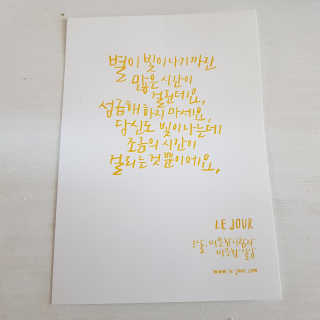 별이 빛이나기까진
많은 시간이
걸린데요,
섣급해 하지 마세요,
당신도 빛이나는데
조금의 시간이
걸리는것 뿐이에요,
LE JOUR
www.le-jour.com